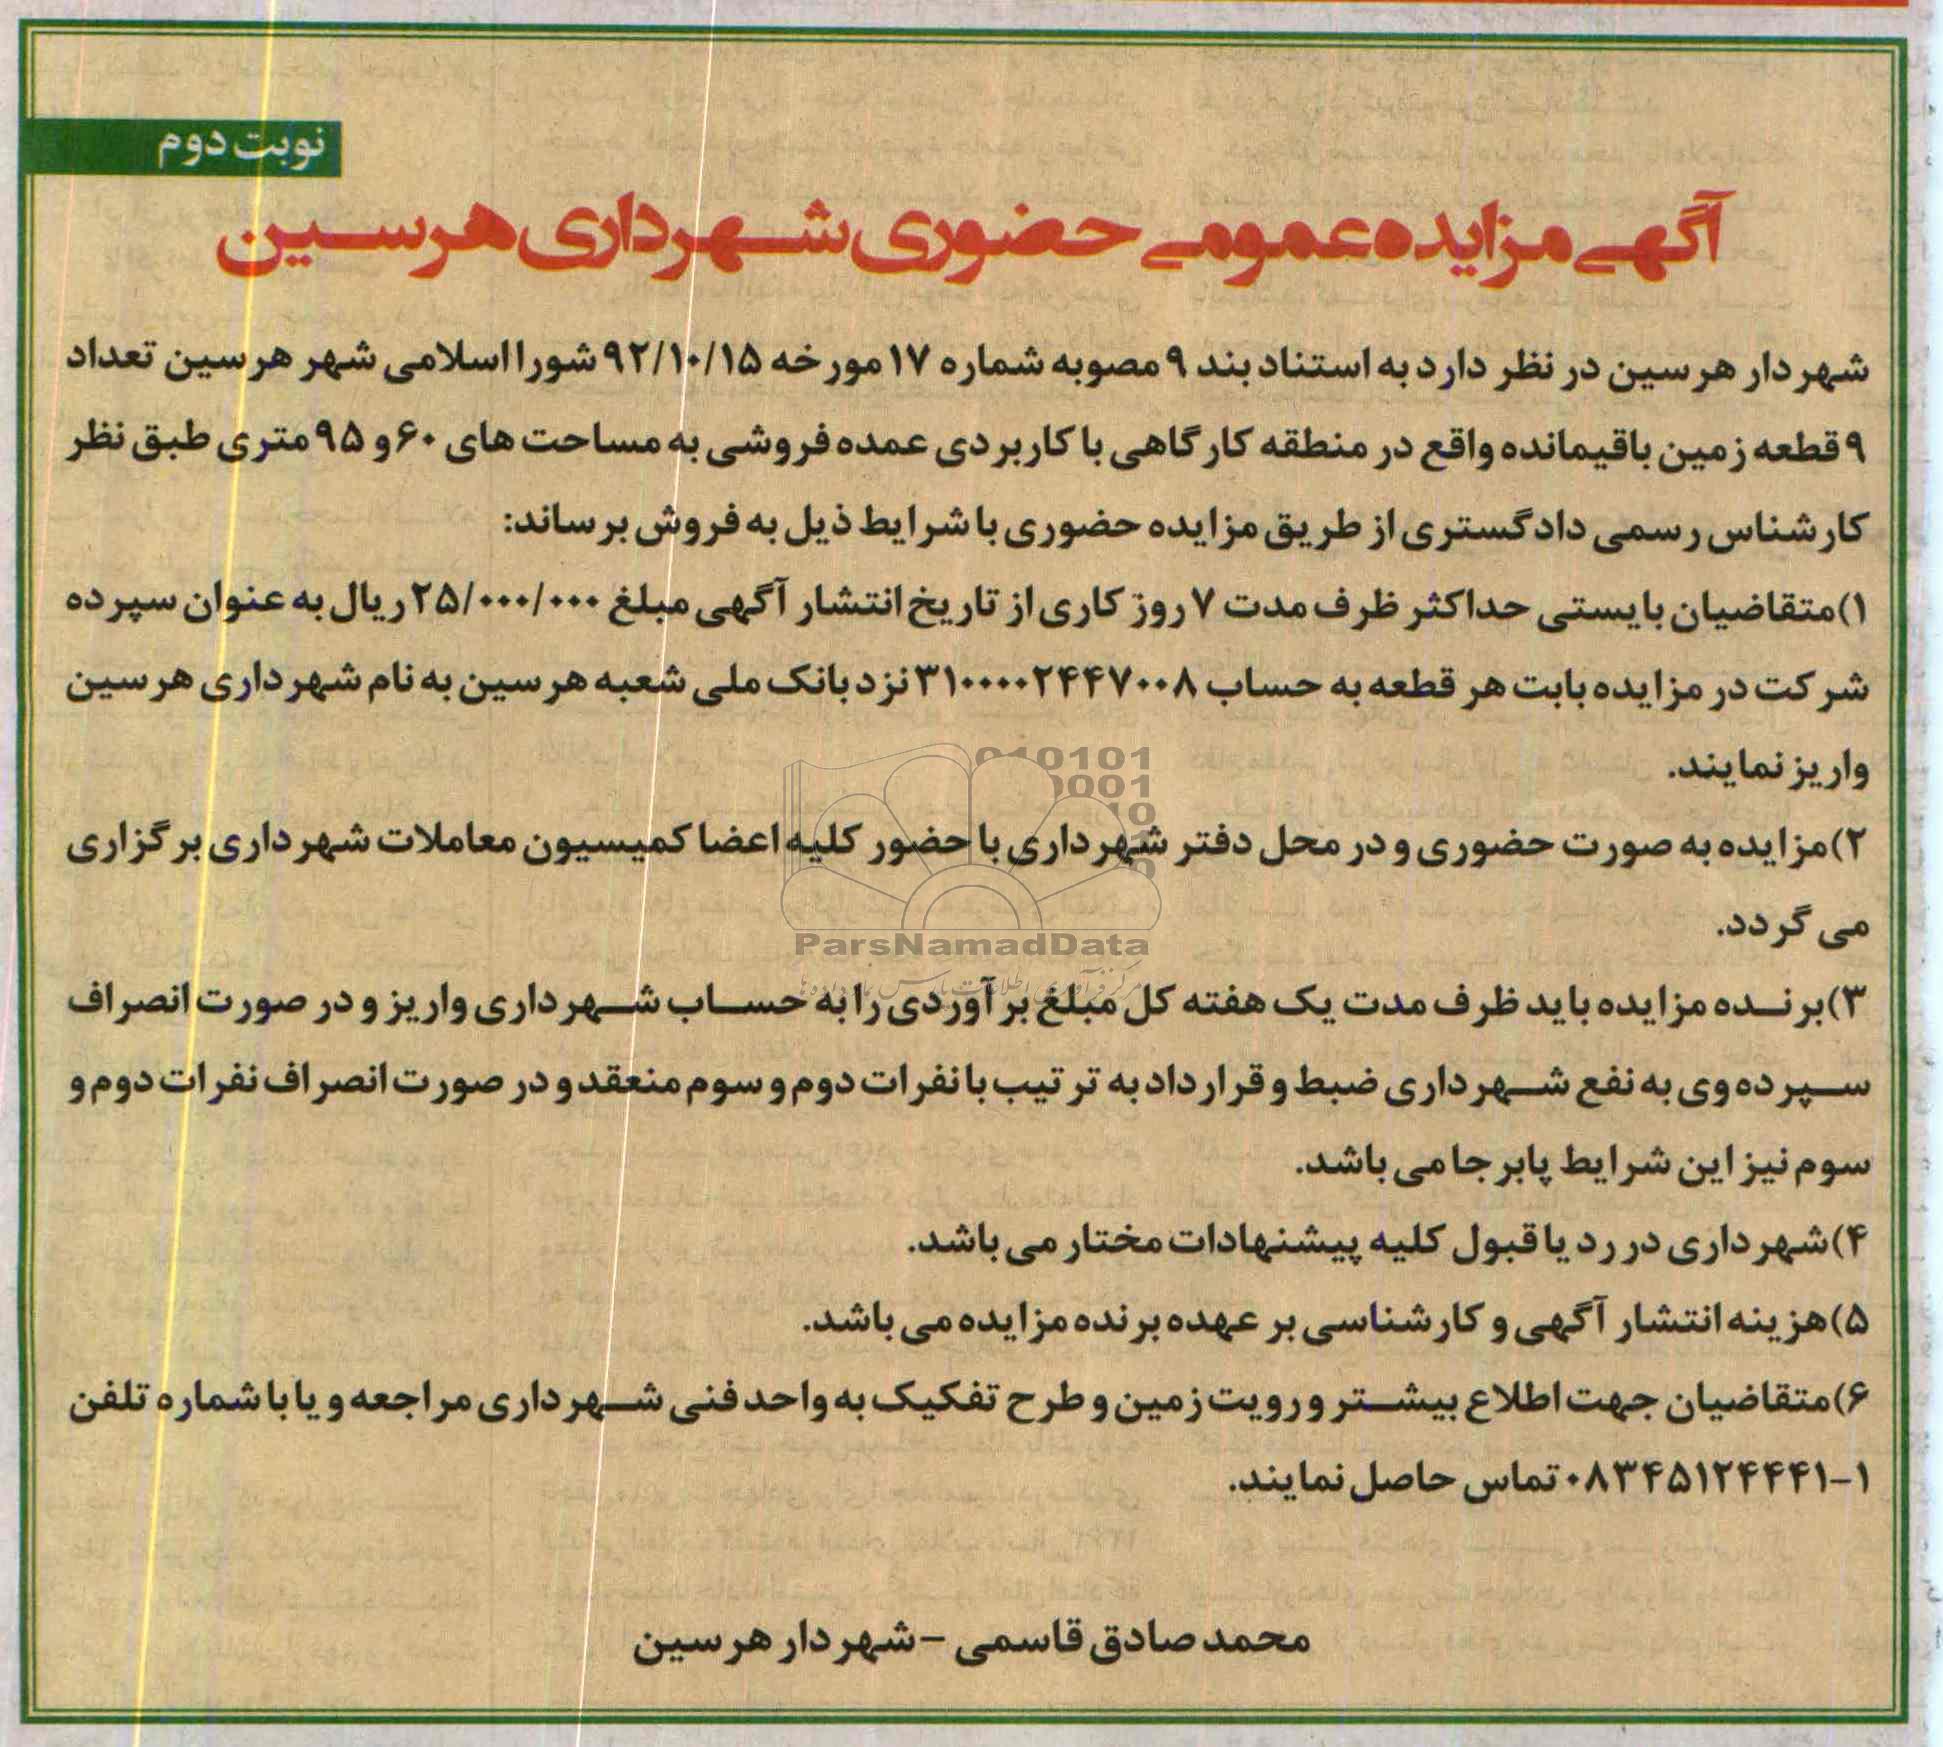 نوبت دوم
آگهی مزایده عمومی حضوری شهرداری هرسین
شهردار هرسین در نظر دارد به استناد بند ۹ مصوبه شماره ۱۷ مورخه ۹۲/۱۰/۱۵ شورا اسلامی شهر هرسین تعداد
۹ قطعه زمین باقیمانده واقع در منطقه کارگاهی با کاربردی عمده فروشی به مساحت های ۶۰ و ۹۵ متری طبق نظر
کارشناس رسمی دادگستری از طریق مزایده حضوری با شرایط ذیل به فروش برساند:
۱) متقاضیان بایستی حداکثر ظرف مدت ۷ روز کاری از تاریخ انتشار آگهی مبلغ ۲۵/۰۰۰/۰۰۰ ریال به عنوان سپرده
شرکت در مزایده بابت هر قطعه به حساب ۳۱۰۰۰۰۲۴۴۷۰۰۸ نزد بانک ملی شعبه هرسین به نام شهرداری هرسین
واریز نمایند.
010101
0001
10
ParsNamadData
۲) مزایده به صورت حضوری و در محل دفتر شهرداری با حضور کلیه اعضا کمیسیون معاملات شهرداری برگزاری
می گردد.
۳) برنده مزایده باید ظرف مدت یک هفته کل مبلغ برآوردی را به حساب شهرداری واریز و در صورت انصراف
سپرده وی به نفع شهرداری ضبط و قرارداد به ترتیب با نفرات دوم و سوم منعقد و در صورت انصراف نفرات دوم و
سوم نیز این شرایط پابرجا می باشد.
۴) شهرداری در رد یا قبول کلیه پیشنهادات مختار می باشد.
۵) هزینه انتشار آگهی و کارشناسی بر عهده برنده مزایده می باشد.
۶) متقاضیان جهت اطلاع بیشتر و رویت زمین و طرح تفکیک به واحد فنی شهرداری مراجعه و یا با شماره تلفن
۱-۰۸۳۴۵۱۲۴۴۴۱ تماس حاصل نمایند.
محمد صادق قاسمی - شهردار هرسین